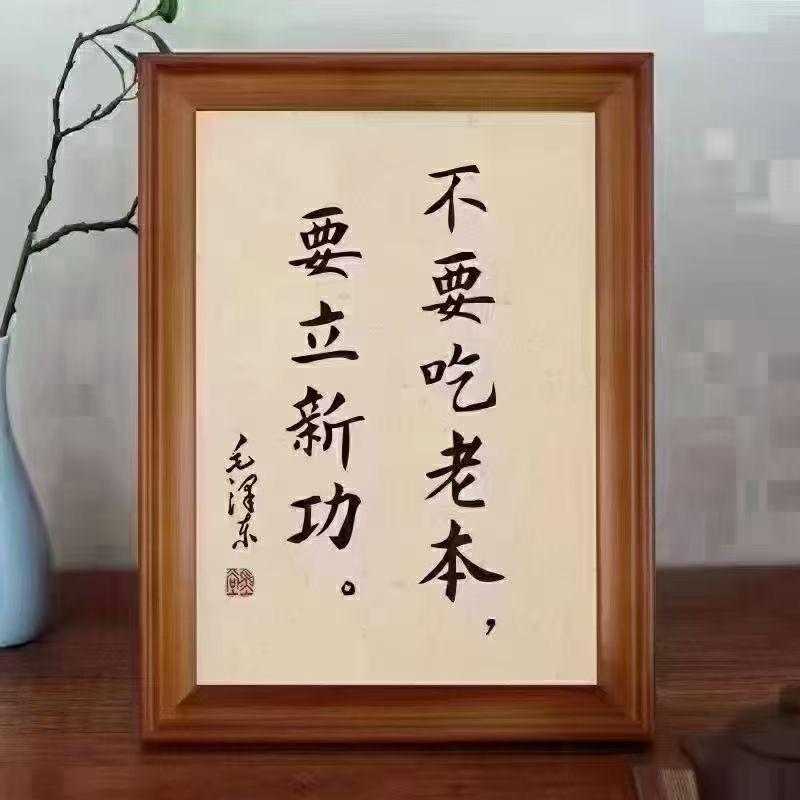 不要吃老本，
要立新功。
毛泽东